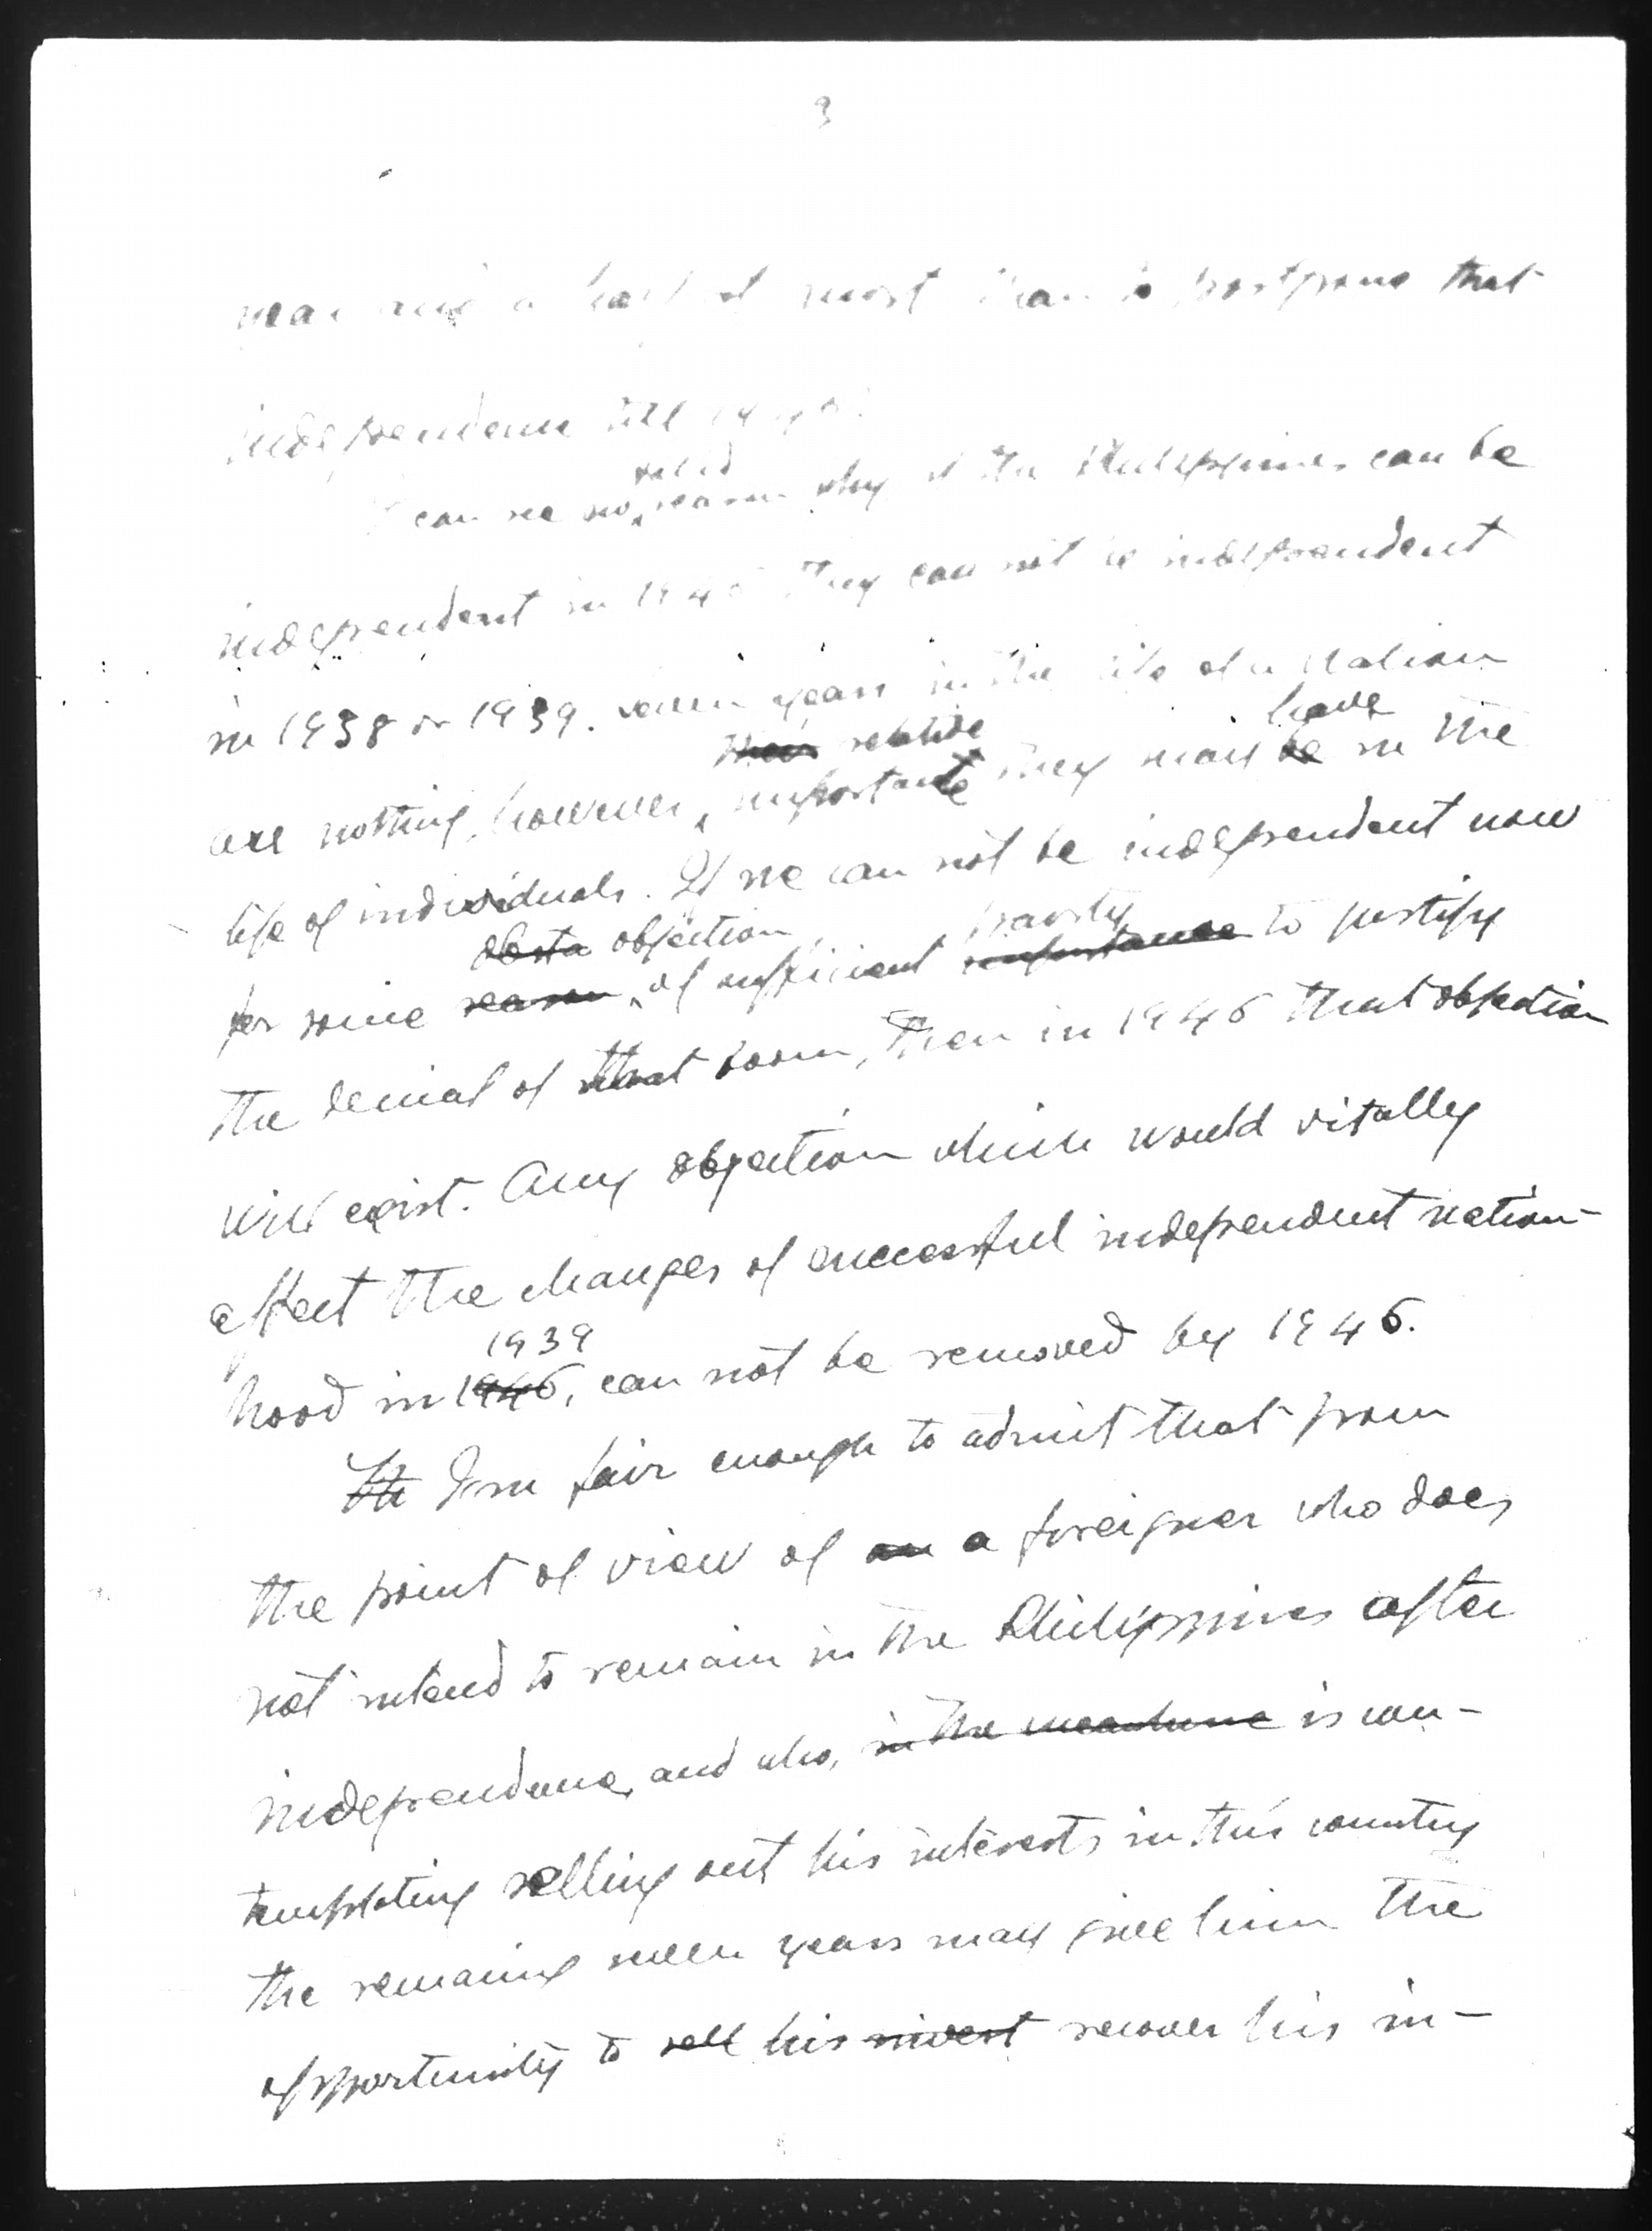 3
year and a half at most than to postpone that
independence till 1946.
valid
I can see no reason why if the Philippines can be
independent in 1946 they can not be independent
in 1938 or 1939. Seven years in the life of a Nation
their relative have
are nothing, however, importante they may be in the
life of individuals. If we can not be independent now
obsta objection gravity
for some reason, of sufficient importance to justify
the denial of that boon, then in 1946 that objection
will exist. Any objection which would vitally
affect the changes of successful independent nation-
1939
hood in 1946, can not be removed by 1946.
It I'm fair enough to admit that from
the point of view of an a foreigner who does
not intend to remain in the Philippines after
independence, and who, in the meantime is con-
templating selling out his interests in this country
the remaing seven years may give him the
opportunity to sell his invest recover his in-